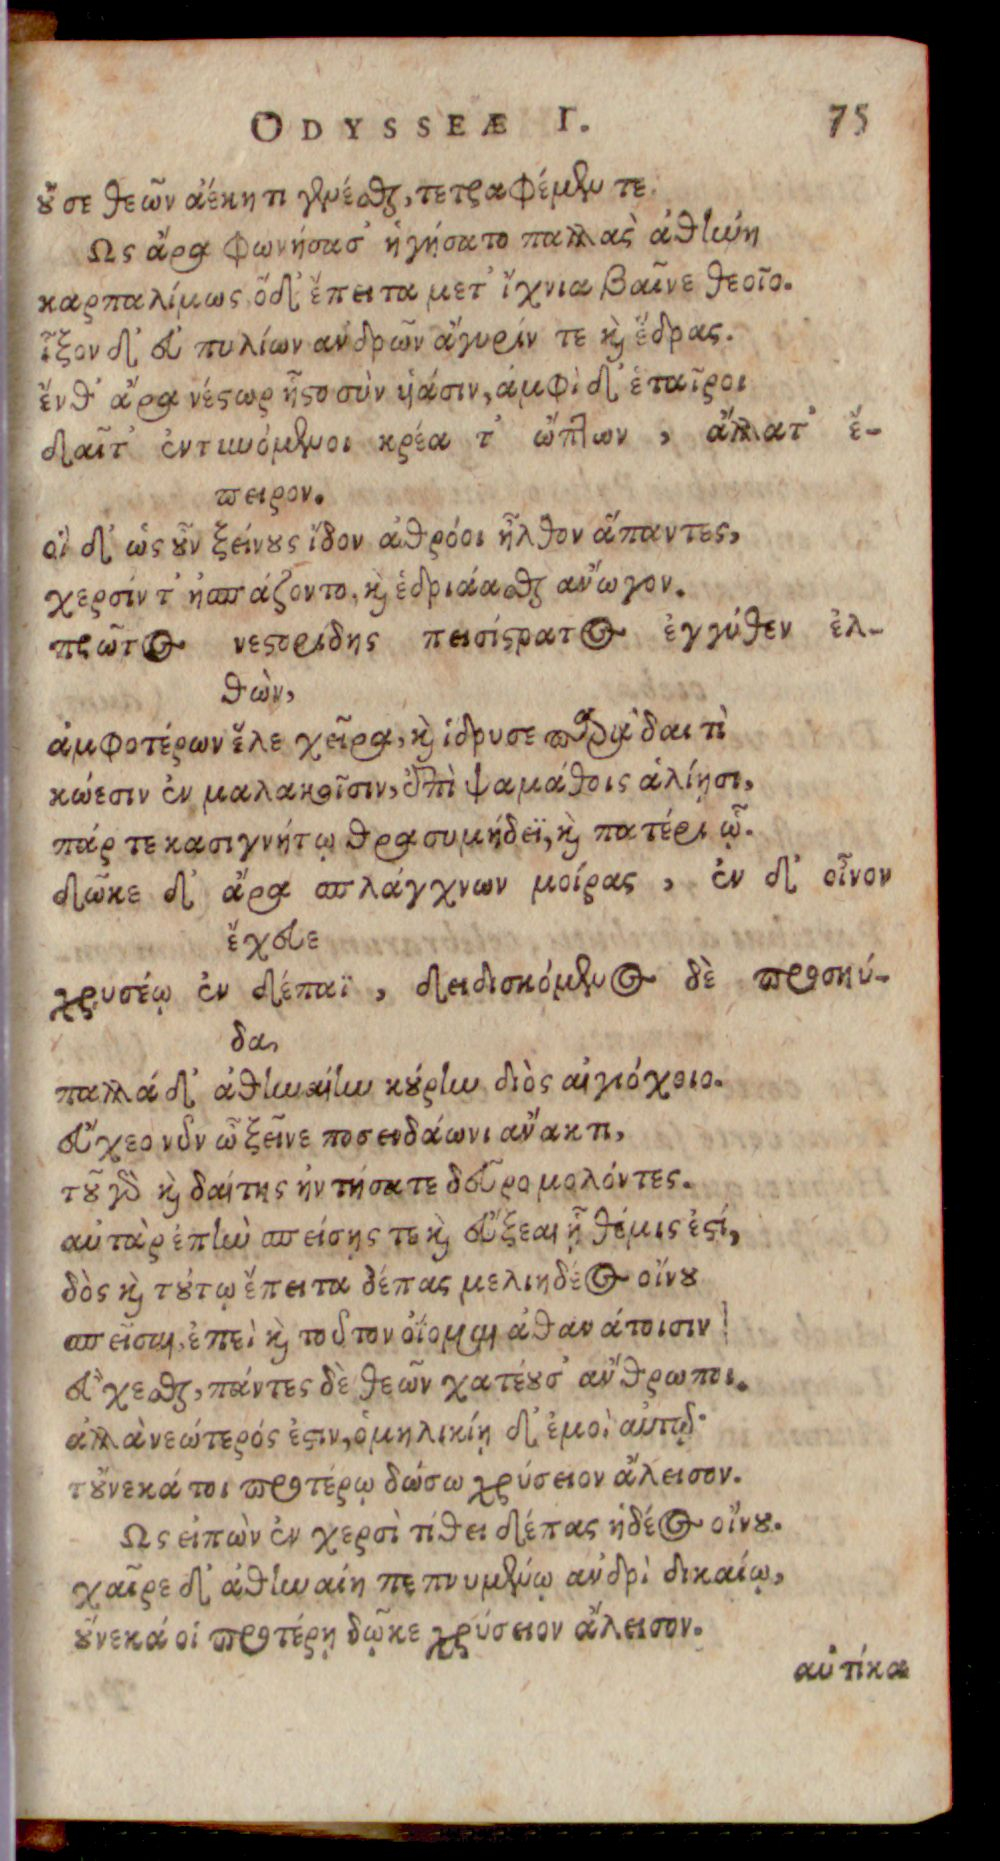 ODYSSEÆ Γ. 75
οὔ σε θεῶν ἀέκητι γενέσθαι, τετραφέμεν τε.
Ὣς ἄρα φωνήσασ᾽ ἡγήσατο παλλὰς ἀθήνη
καρπαλίμως, ὅδ᾽ ἔπειτα μετ᾽ ἴχνια βαῖνε θεοῖο.
ἷξον δ᾽ ἐς πυλίων ανδρῶν ἄγυρίν τε καὶ ἕδρας.
ἔνθ᾽ ἄρα νέστωρ ἧστο σὺν ὑάσιν, ἀμφὶ δ᾽ ἑταῖροι
δαῖτ᾽ ἐντυνόμενοι κρέα τ᾽ ὤπτων, ἄλλατ᾽ ἔ-
πειρον.
οἳ δ᾽ ὡς οὖν ξείνους ἴδον ἀθρόοι ἦλθον ἅπαντες,
χερσίν τ᾽ ἠσπάζοντο, καὶ ἑδριάασθαι ανώγον.
πρῶτος νεστορίδης πεισίστρατος ἐγγύθεν ἐλ-
θὼν,
ἀμφοτέρων ἕλε χεῖρα, καὶ ἵδρυσε παρὰ δαιτὶ
κώεσιν ἐν μαλακοῖσιν, ἐπὶ ψαμάθοις ἁλίησι,
πάρ τε κασιγνήτῳ θρασυμήδεϊ, καὶ πατέρι ᾧ.
δῶκε δ᾽ ἄρα σπλάγχνων μοίρας, ἐν δ᾽ οἶνον
ἔχευε
χρυσέῳ ἐν δέπαϊ, δειδισκόμενος δὲ προσηύ-
δα,
παλλάδ᾽ ἀθηναίην κούρην διὸς αἰγιόχοιο.
εὔχεο νῦν ὦ ξεῖνε ποσειδάωνι ανακτι,
τοῦ γὰρ καὶ δαίτης ἠντήσατε δεῦρο μολόντες.
αὐτὰρ ἐπὴν σπείσῃς τε καὶ εὔξεαι ᾗ θέμις ἐστί,
δὸς καὶ τούτῳ ἔπειτα δέπας μελιηδέος οἴνου
σπεῖσαι, ἐπεὶ καὶ τοῦτον ὀΐομαι ἀθανάτοισιν
εὔχεσθαι, πάντες δὲ θεῶν χατέουσ᾽ ανθρωποι.
ἀλλὰ νεώτερός ἐστιν, ὁμηλικίη δ᾽ ἐμοὶ αὐτῷ·
τοὔνεκά τοι προτέρῳ δώσω χρύσειον ἄλεισον.
Ὣς εἰπὼν ἐν χερσὶ τίθει δέπας ἡδέος οἴνου.
χαῖρε δ᾽ ἀθηναίη πεπνυμένῳ ανδρὶ δικαίῳ,
οὕνεκά οἱ προτέρῃ δῶκε χρύσειον ἄλεισον.
αὐτίκα